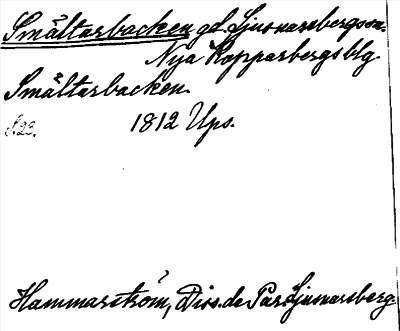 Smältarbacken gd. Ljusnarsbergs sn.
Nya Kopparbergs blg.
Smältarbacken.
S. 23. 1812 Ups.
Hammarström, Diss. de Par. Ljusnarsberg.